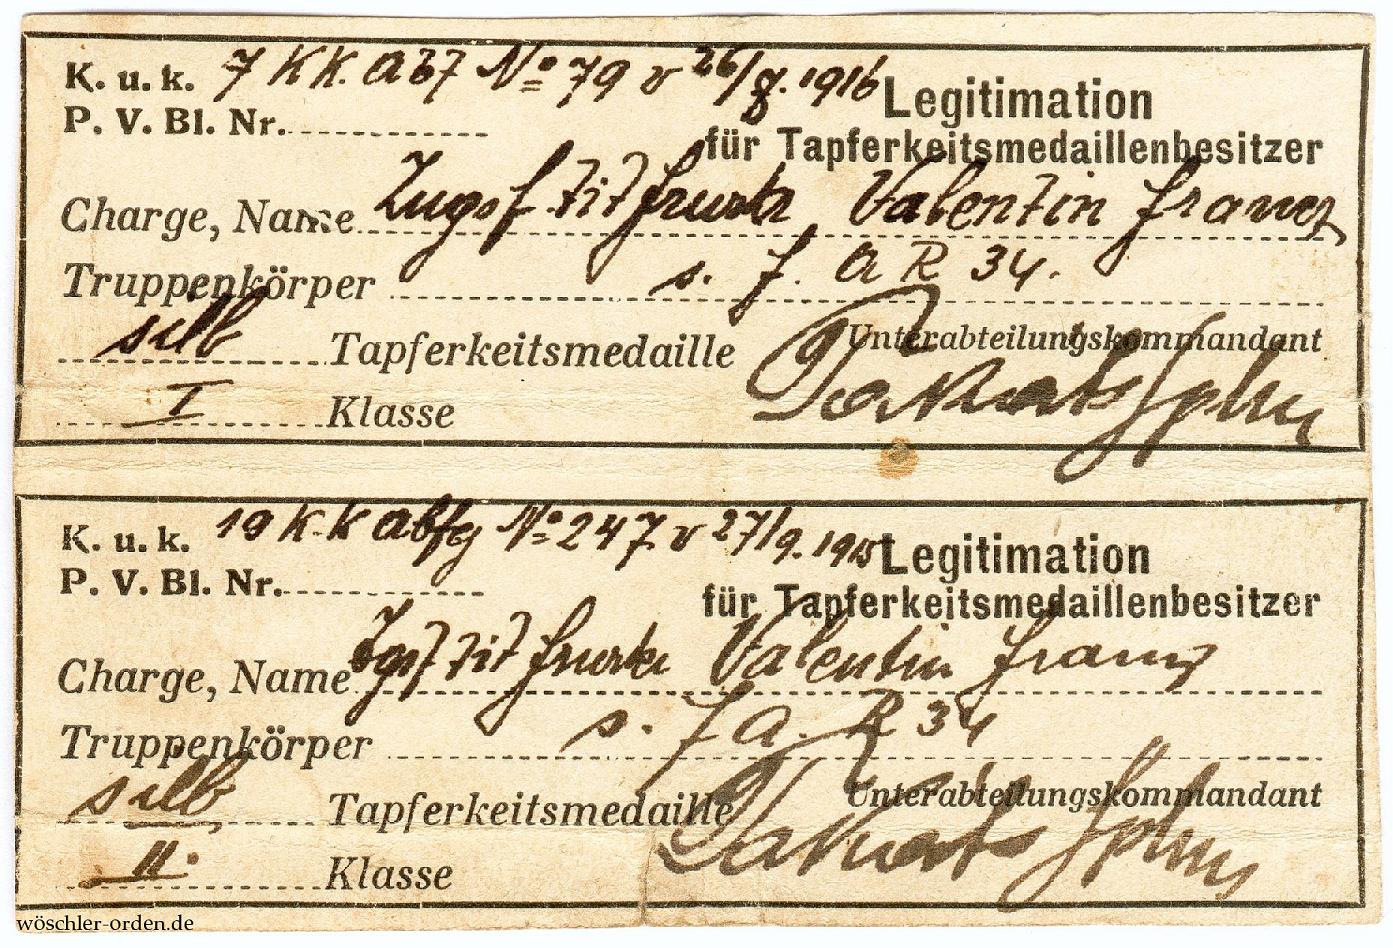 K. u. k. 7 KK. Ab7 No 79 v 26/8. 1916
Legitimation
P. V. Bl. Nr.
für Tapferkeitsmedaillenbesitzer
Charge, Name Zugsf tit Valentin Franz
Truppenkörper s. f. A R 34.
silb Tapferkeitsmedaille
Unterabteilungskommandant
I Klasse
K. u. k. 19 K. K Abfg No 247 v 27/9. 1915
Legitimation
P. V. Bl. Nr.
für Tapferkeitsmedaillenbesitzer
Charge, Name Zgsf tit Valentin Franz
Truppenkörper s. f A. R 34
silb Tapferkeitsmedaille
Unterabteilungskommandant
II. Klasse
wöschler-orden.de